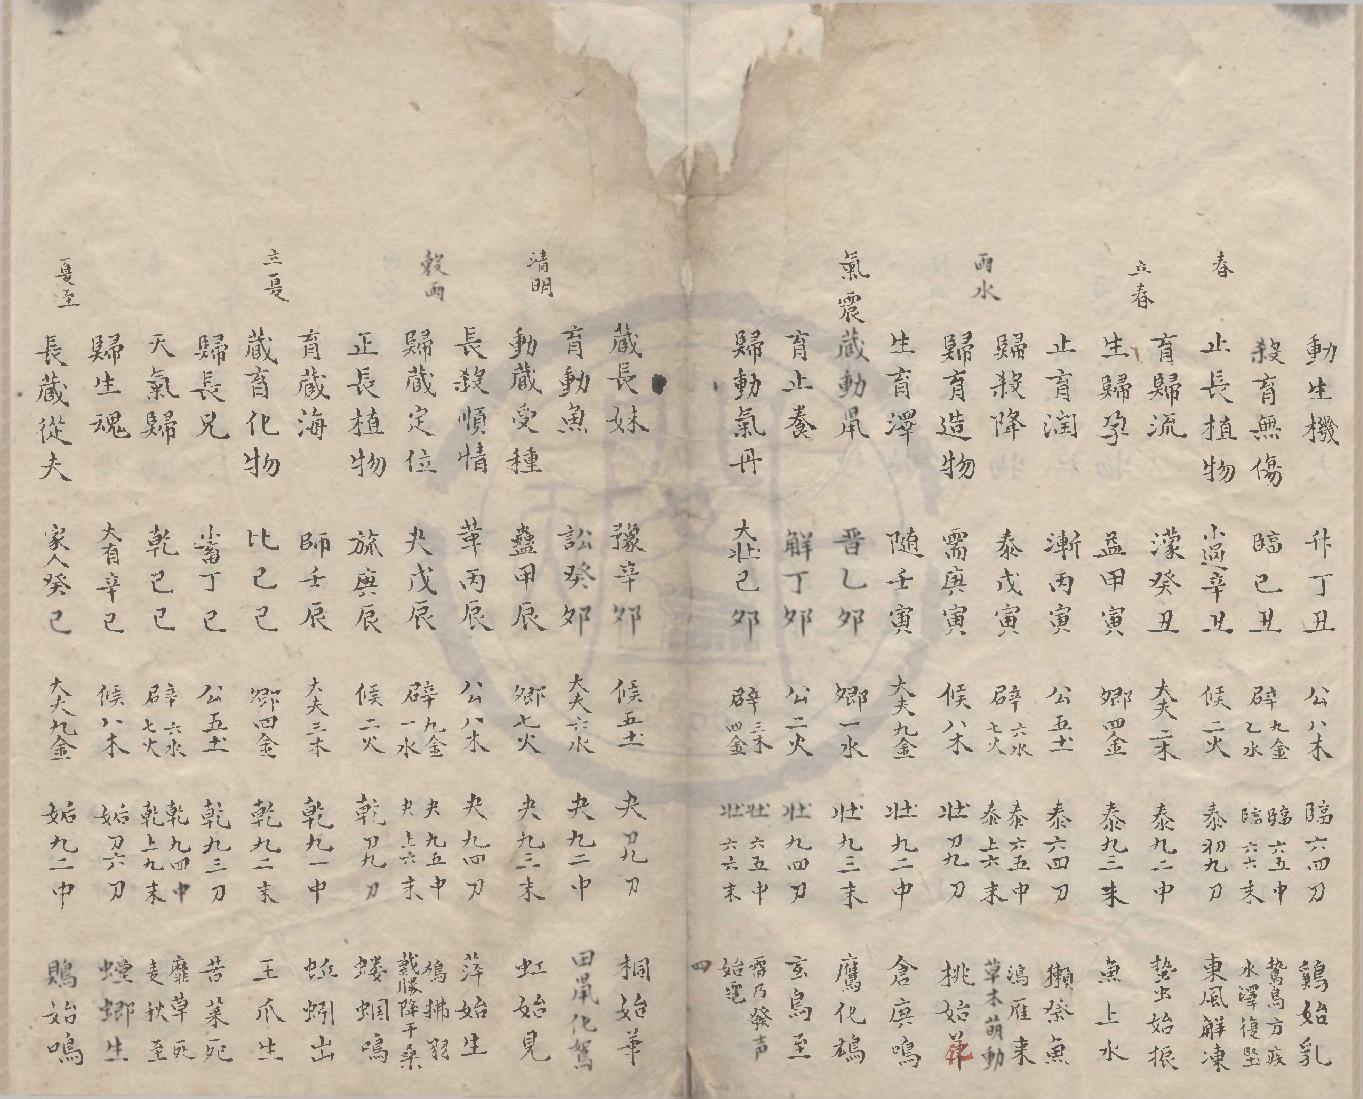 動生機 升丁丑 公八木 臨六四刀 鷄始乳
殺育無傷 臨己丑 辟九金乙水 臨六五中臨六六末 鷙鳥方疾水澤復堅
春 止長植物 小過辛丑 候二火 泰初九刀 東風解凍
育歸流 濛癸丑 大夫二木 泰九二中 蟄虫始振
立春 生歸孕 益甲寅 卿四金 泰九三末 魚上水
止育润 漸丙寅 公五土 泰六四刀 獺祭魚
歸殺降 泰戊寅 辟六水七火 泰六五中泰上六末 鴻雁来草木萌動
雨水 歸育造物 需庚寅 候八木 壯刀九刀 挑始花
生育澤 随壬寅 大夫九金 壯九二中 倉庚鳴
氣震 蔵動鼡 晋乙夘 卿一水 壯九三末 鷹化鴣
育止養 觧丁夘 公二火 壯九四刀 玄鳥至
歸動氣丹 大壯己夘 辟三木四金 壯六五中壯六六末 雷乃發声始電
四
蔵長妹 豫辛夘 候五土 夬刀九刀 桐始華
育動魚 訟癸夘 大夫六水 夬九二中 田鼡化鴽
清明 動蔵受種 蠱甲辰 卿七火 夬九三末 虹始見
長殺順情 革丙辰 公八木 夬九四刀 萍始生
穀雨 歸蔵定位 夬戊辰 辟九金一水 夬九五中夬上六末 鳩拂羽戴勝降于桑
正長植物 旅庚辰 候二火 乾刀九刀 螻蟈鳴
育蔵海 師壬辰 大夫三木 乾九一中 蚯蚓出
立夏 蔵育化物 比乙巳 卿四金 乾九二末 王爪生
歸長兄 小畜丁巳 公五土 乾九三刀 苦菜死
天氣歸 乾己巳 辟六水七火 乾九四中乾上九末 靡草死麦秋至
歸生魂 大有辛巳 候八木 姤刀六刀 螳螂生
夏至 長蔵從夫 家人癸巳 大夫九金 姤九二中 鵙始鳴